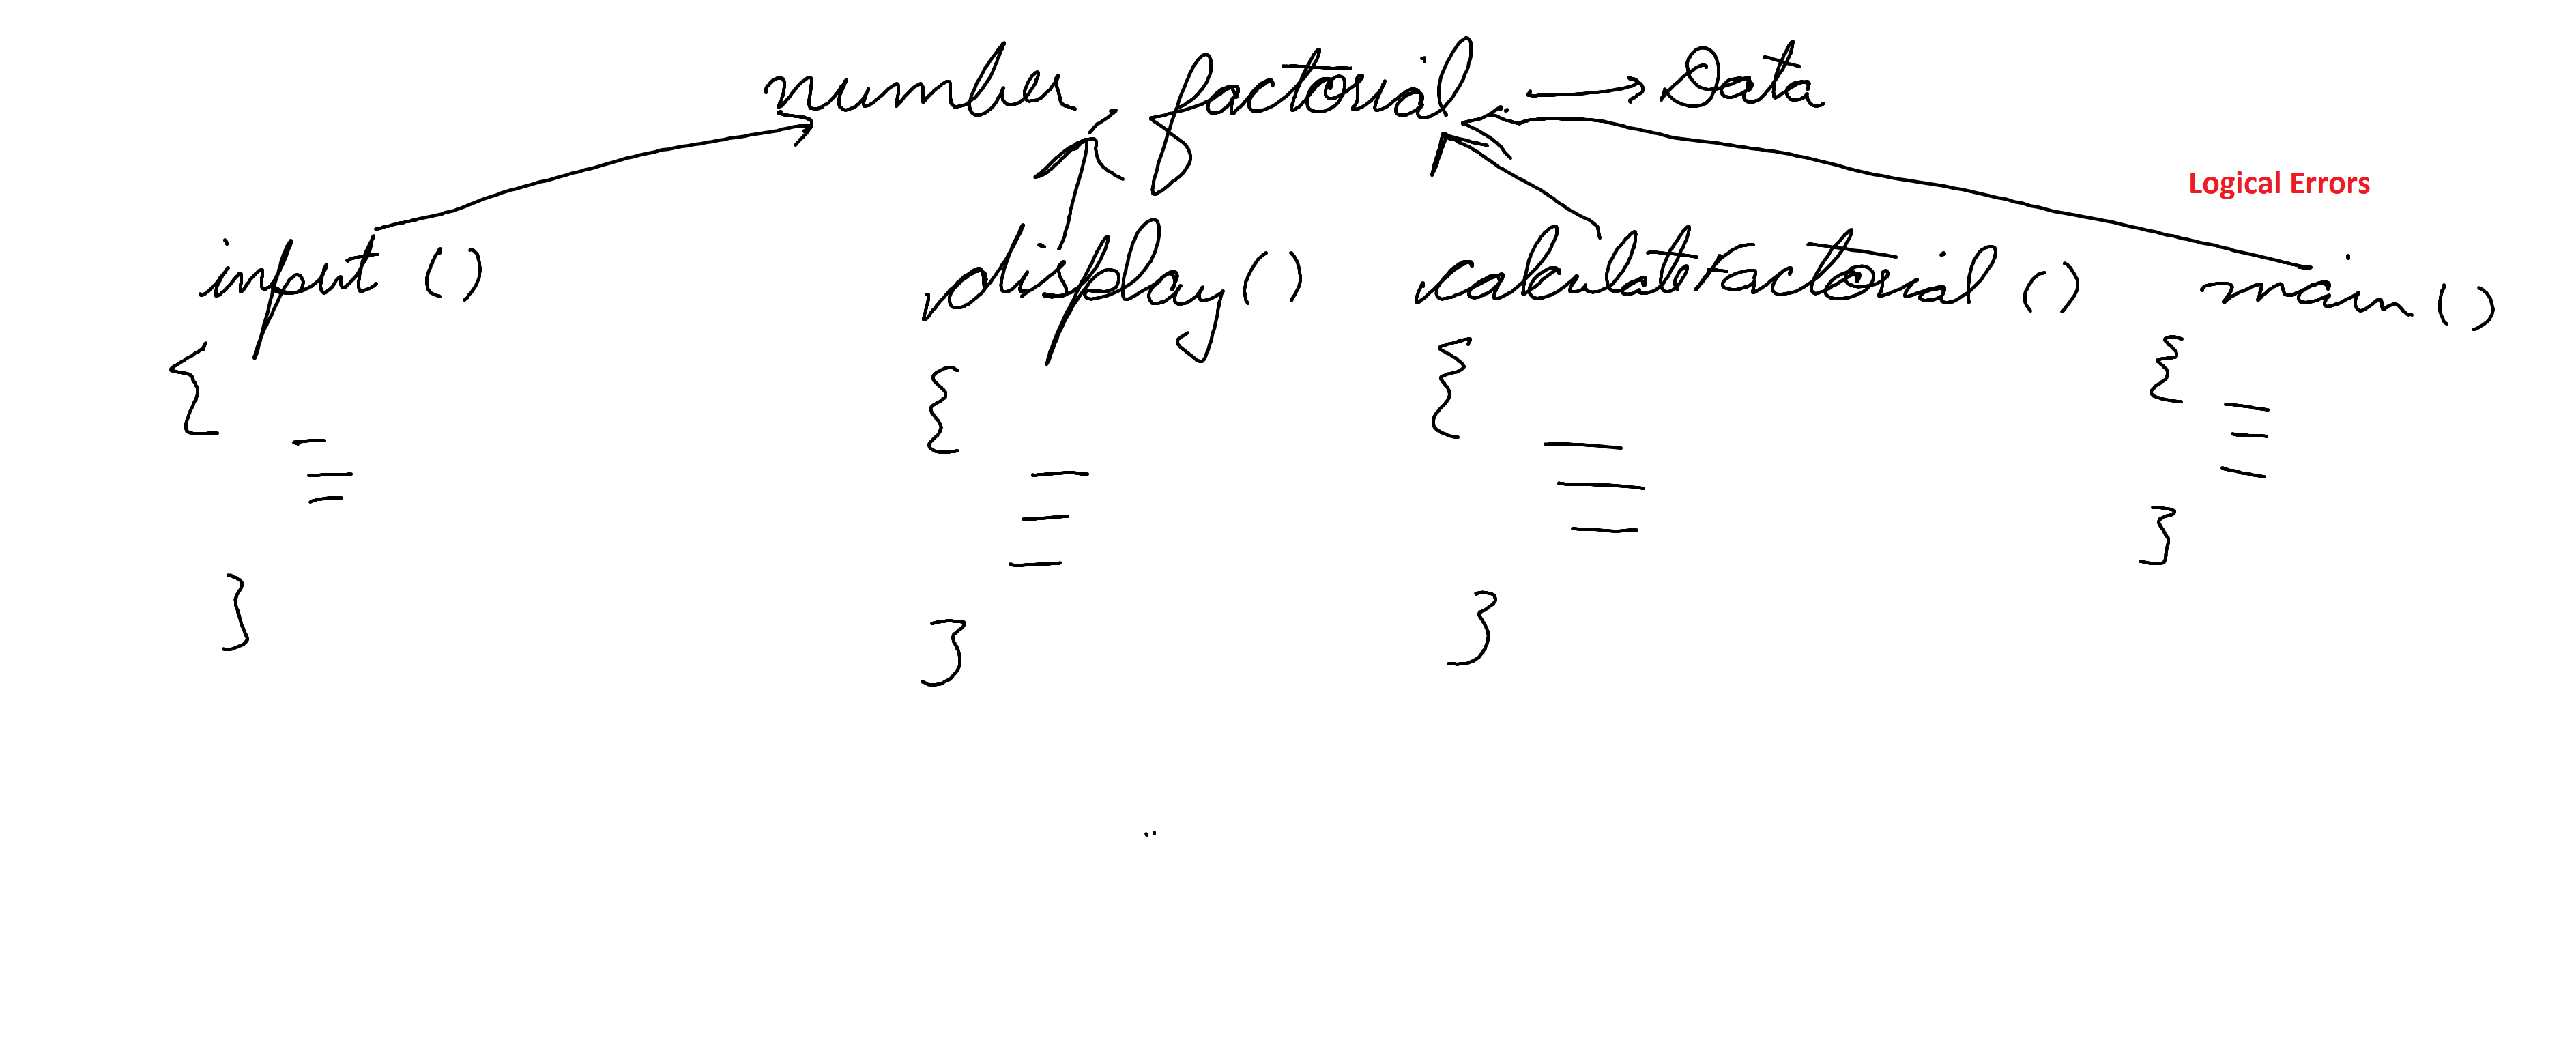 number, factorial → Data
Logical Errors
input () display () calculateFactorial () main ()
{ { { {
} } } }